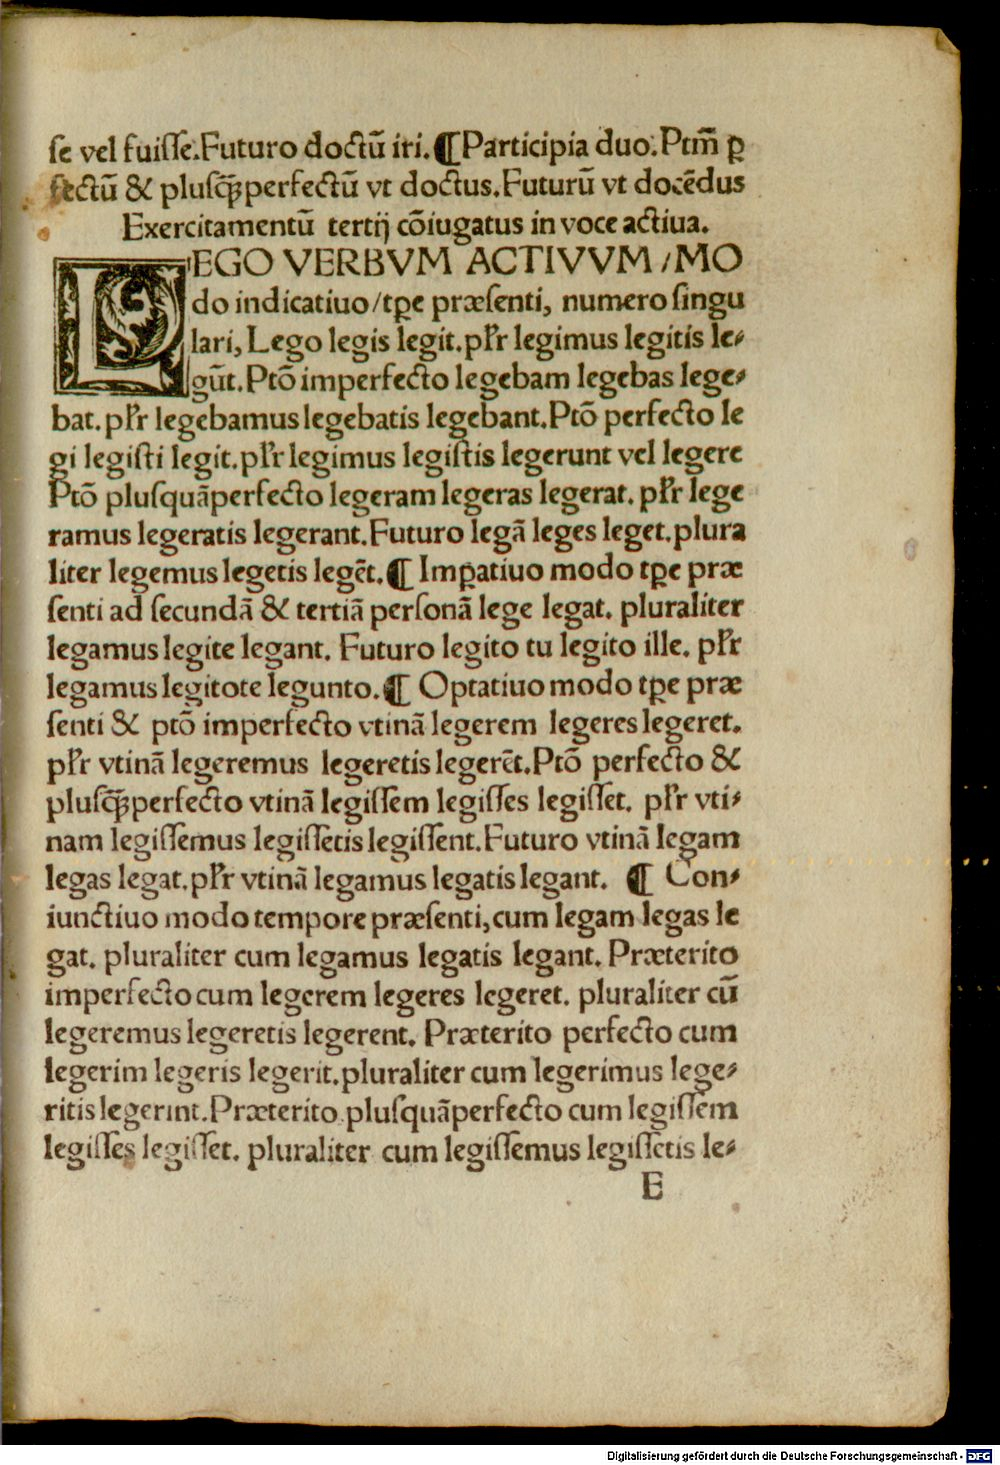 se vel fuisse.Futuro doctū iri.¶Participia duo.Ptm̄ ꝑ
fectū & plusq̄ꝑperfectū vt doctus.Futurū vt docēdus
Exercitamentū tertij cōiugatus in voce actiua.
LEGO VERBVM ACTIVVM/MO
do indicatiuo/tꝑe præsenti, numero singu
lari, Lego legis legit.pl̄r legimus legitis le-
gūt.Ptō imperfecto legebam legebas lege-
bat.pl̄r legebamus legebatis legebant.Ptō perfecto le
gi legisti legit.pl̄r legimus legistis legerunt vel legere
Ptō plusquāperfecto legeram legeras legerat. pl̄r lege
ramus legeratis legerant.Futuro legā leges leget.plura
liter legemus legetis legēt.¶ Imꝑatiuo modo tꝑe præ
senti ad secundā & tertiā personā lege legat. pluraliter
legamus legite legant. Futuro legito tu legito ille. pl̄r
legamus legitote legunto.¶ Optatiuo modo tꝑe præ
senti & ptō imperfecto vtinā legerem legeres legeret.
pl̄r vtinā legeremus legeretis legerēt.Ptō perfecto &
plusq̄ꝑperfecto vtinā legissem legisses legisset. pl̄r vti-
nam legissemus legissetis legissent.Futuro vtinā legam
legas legat.pl̄r vtinā legamus legatis legant. ¶ Con-
iunctiuo modo tempore præsenti,cum legam legas le
gat. pluraliter cum legamus legatis legant. Præterito
imperfecto cum legerem legeres legeret. pluraliter cū
legeremus legeretis legerent. Præterito perfecto cum
legerim legeris legerit.pluraliter cum legerimus lege-
ritis legerint.Præterito plusquāperfecto cum legissem
legisses legisset. pluraliter cum legissemus legissetis le-
E
Digitalisierung gefördert durch die Deutsche Forschungsgemeinschaft - DFG